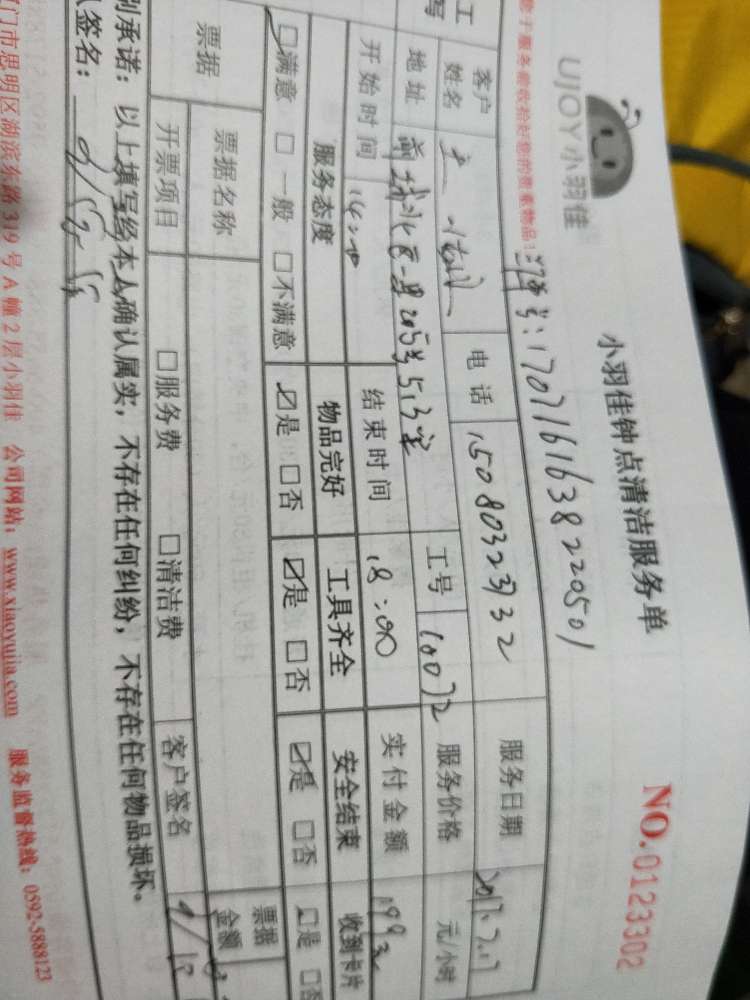 UJOY小羽佳
小羽佳钟点清洁服务单
NO.0123302
于服务前收拾好您的贵重物品!
单号:1707161638220501
客户姓名 电话 15080323732 服务日期 2017.7.17
地址 工号 10072 服务价格 元/小时
开始时间 14:00 结束时间 18:00 实付金额 199元
服务态度 物品完好 工具齐全 安全结束 收到卡片
☑满意 □一般 □不满意 ☑是 □否 ☑是 □否 ☑是 □否 □是 □否
票据 票据名称 票据金额
开票项目 □服务费 □清洁费 客户签名
承诺:以上填写经本人确认属实,不存在任何纠纷,不存在任何物品损坏。
签名:
门市思明区湖滨东路319号A幢2层小羽佳 公司网站:www.xiaoyujia.com 服务监督热线:0592-5888123